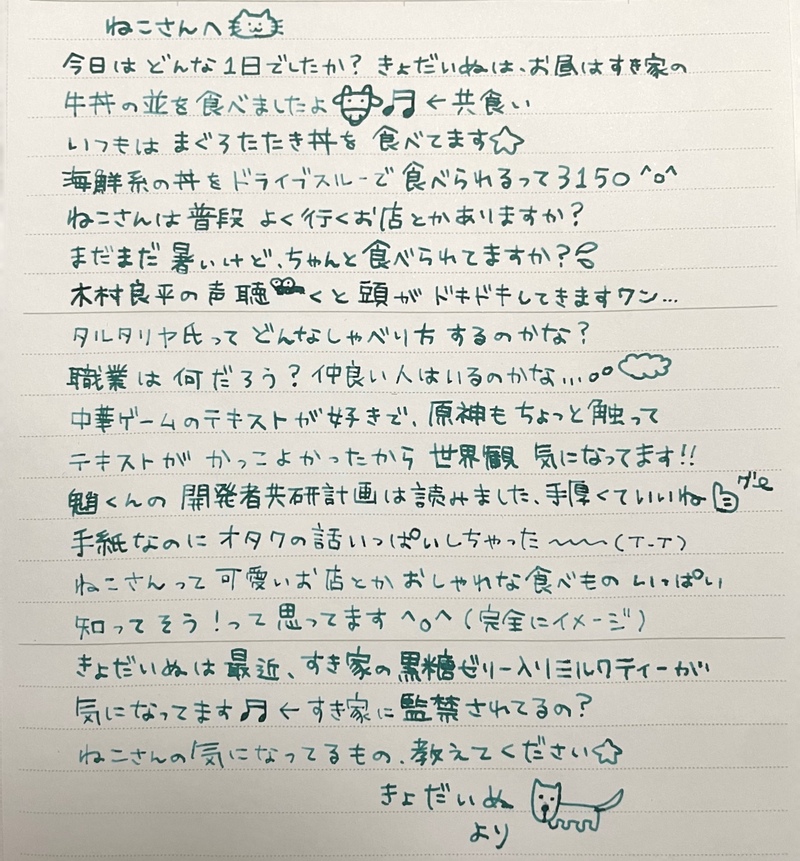 ねこさんへ
今日は どんな 1日でしたか? きょだいぬは、お昼はすき家の
牛丼の並を食べましたよ ♫ ←共食い
いつもは まぐろたたき丼を 食べてます☆
海鮮系の丼をドライブスルーで 食べられるって3150 ^o^
ねこさんは 普段 よく行くお店とかありますか?
まだまだ 暑いけど、ちゃんと 食べられてますか?
木村良平の 声 聴くと 頭が ドキドキしてきますワン…
タルタリヤ氏って どんなしゃべり方 するのかな?
職業は 何だろう? 仲良い人はいるのかな…
中華ゲームのテキストが好きで、原神も ちょっと触って
テキストが かっこよかったから 世界観 気になってます!!
魈くんの 開発者共研計画は読みました、手厚くていいね
手紙なのに オタクの話いっぱいしちゃった〜〜(T-T)
ねこさんって 可愛いお店とか おしゃれな食べもの いっぱい
知ってそう!って思ってます ^o^ (完全にイメージ)
きょだいぬは 最近、すき家の黒糖ゼリー入りミルクティーが
気になってます♫ ←すき家に監禁されてるの?
ねこさんの気になってるもの、教えてください☆
きょだいぬ
より